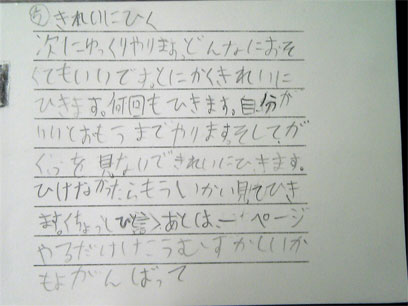 ㋒きれいにひく
次にゆっくりやります。どんなにおそ
くてもいいです。とにかくきれいに
ひきます。何回もひきます。自分が
いいとおもうまでやります。そしてが
くふを見ないできれいにひきます。
ひけなかったら、もういかい見てひき
ます。〈ちょっとひと言〉あとは、一ページ
やるだけけこうむずかしいか
もよがんばって